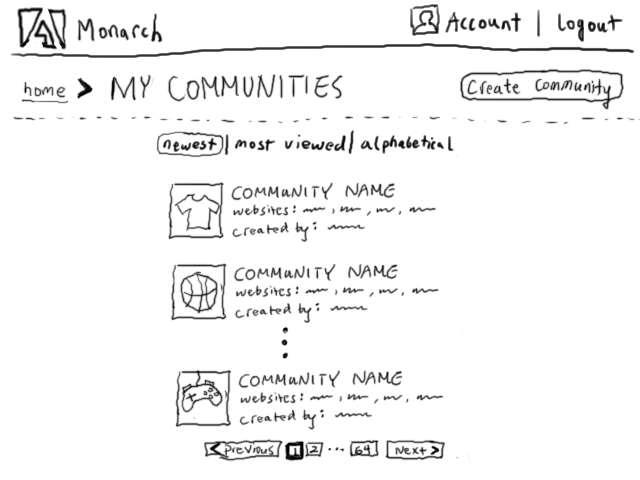 Monarch Account | Logout
home > MY COMMUNITIES Create Community
newest | most viewed | alphabetical
COMMUNITY NAME
websites: , , ,
created by:
COMMUNITY NAME
websites: , , ,
created by:
COMMUNITY NAME
websites: , , ,
created by:
< Previous 1 2 ... 64 Next >